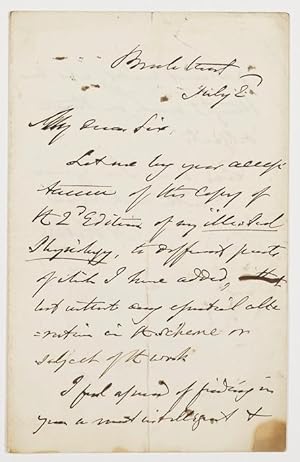 July 2d
My dear Sir,
Let me beg your accep
tance of this Copy of
the 2d Edition of my
Physiology, to different parts
of which I have added,
but without any essential alte
=ration in the scheme or
subject of the work
I feel assured of finding in
you a most intelligent &